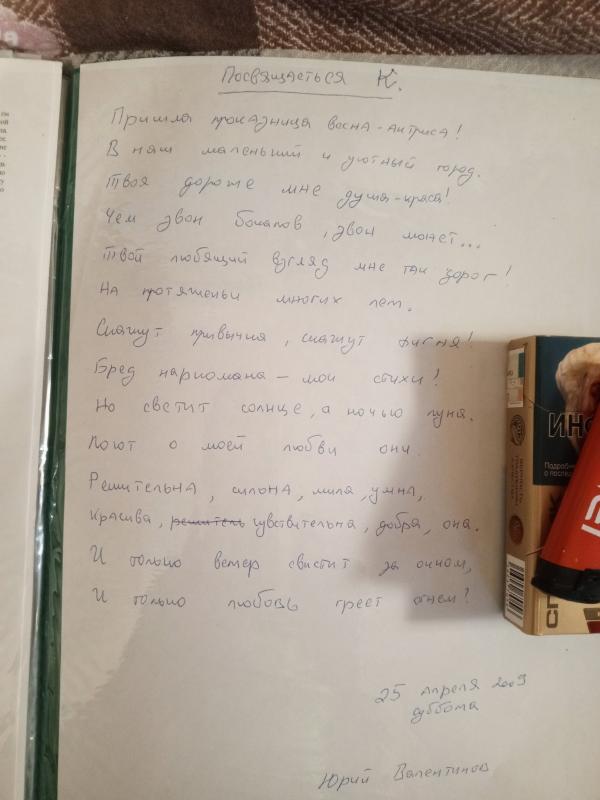 Посвящаеться К.
Пришла проказница весна-актриса!
В наш маленький и уютный город.
Твоя дороже мне душа-краса!
Чем звон бокалов, звон монет...
Твой любящий взгляд мне так дорог!
На протяженьи многих лет.
Скажут привычка, скажут фигня!
Бред наркомана - мои стихи!
Но светит солнце, а ночью луна.
Поют о моей любви они.
Решительна, сильна, мила, умна,
Красива, решитель чувствительна, добра, она.
И только ветер свистит за окном,
И только любовь греет огнем!
25 апреля 2009
суббота
Юрий Валентинов